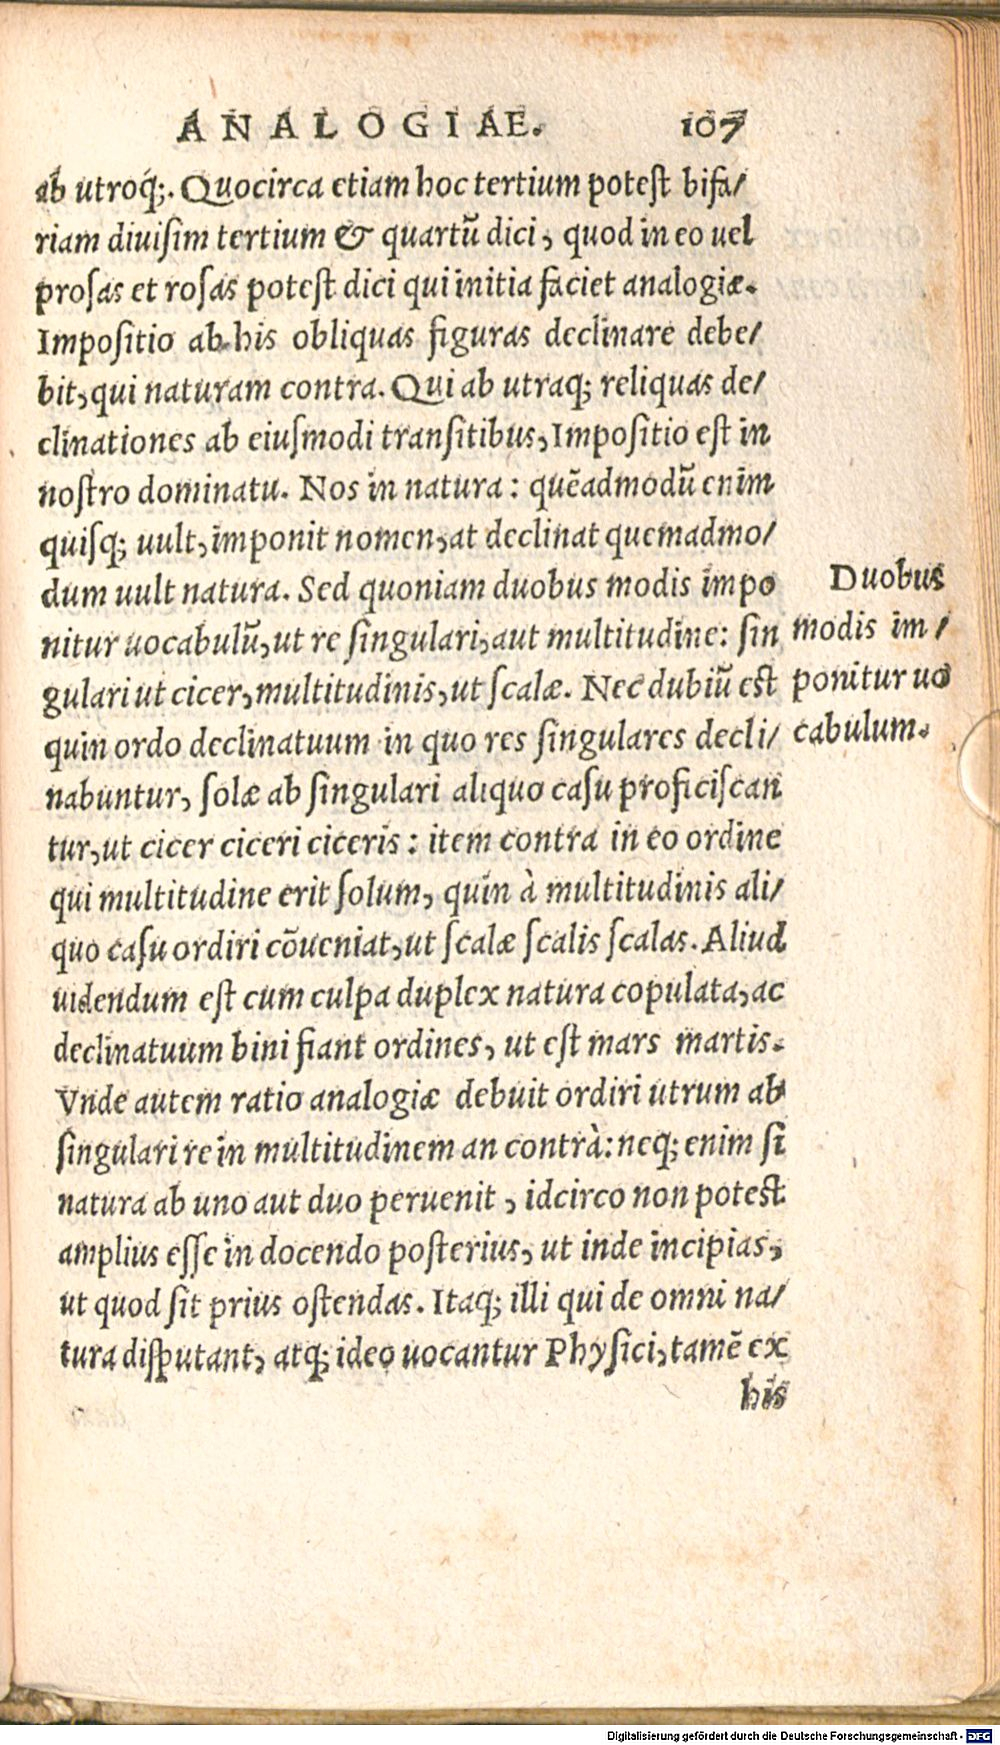 ANALOGIAE. 107
ab utroq́;. Quocirca etiam hoc tertium potest bifa/
riam diuiſim tertium & quartũ dici, quod in eo uel
proſas et roſas potest dici qui initia faciet analogiæ.
Impoſitio ab his obliquas figuras declinare debe/
bit, qui naturam contra. Qui ab utraq; reliquas de/
clinationes ab eiuſmodi tranſitibus, Impoſitio eſt in
noſtro dominatu. Nos in natura: quẽadmodũ enim
quiſq; uult, imponit nomen, at declinat quemadmo/
dum uult natura. Sed quoniam duobus modis impo
nitur uocabulũ, ut re ſingulari, aut multitudine: ſin
gulari ut cicer, multitudinis, ut ſcalæ. Nec dubiũ est
quin ordo declinatuum in quo res ſingulares decli/
nabuntur, ſolæ ab ſingulari aliquo caſu proficiſcan
tur, ut cicer ciceri ciceris: item contra in eo ordine
qui multitudine erit ſolum, quin à multitudinis ali/
quo caſu ordiri cõueniat, ut ſcalæ ſcalis ſcalas. Aliud
uidendum eſt cum culpa duplex natura copulata, ac
declinatuum bini fiant ordines, ut eſt mars martis.
Vnde autem ratio analogiæ debuit ordiri utrum ab
ſingulari re in multitudinem an contrà: neq; enim ſi
natura ab uno aut duo peruenit, idcirco non potest
amplius eſſe in docendo poſterius, ut inde incipias,
ut quod ſit prius oſtendas. Itaq; illi qui de omni na/
tura diſputant, atq; ideo uocantur Phyſici, tamẽ ex
his
Duobus
modis im/
ponitur uo
cabulum.
Digitalisierung gefördert durch die Deutsche Forschungsgemeinschaft - DFG